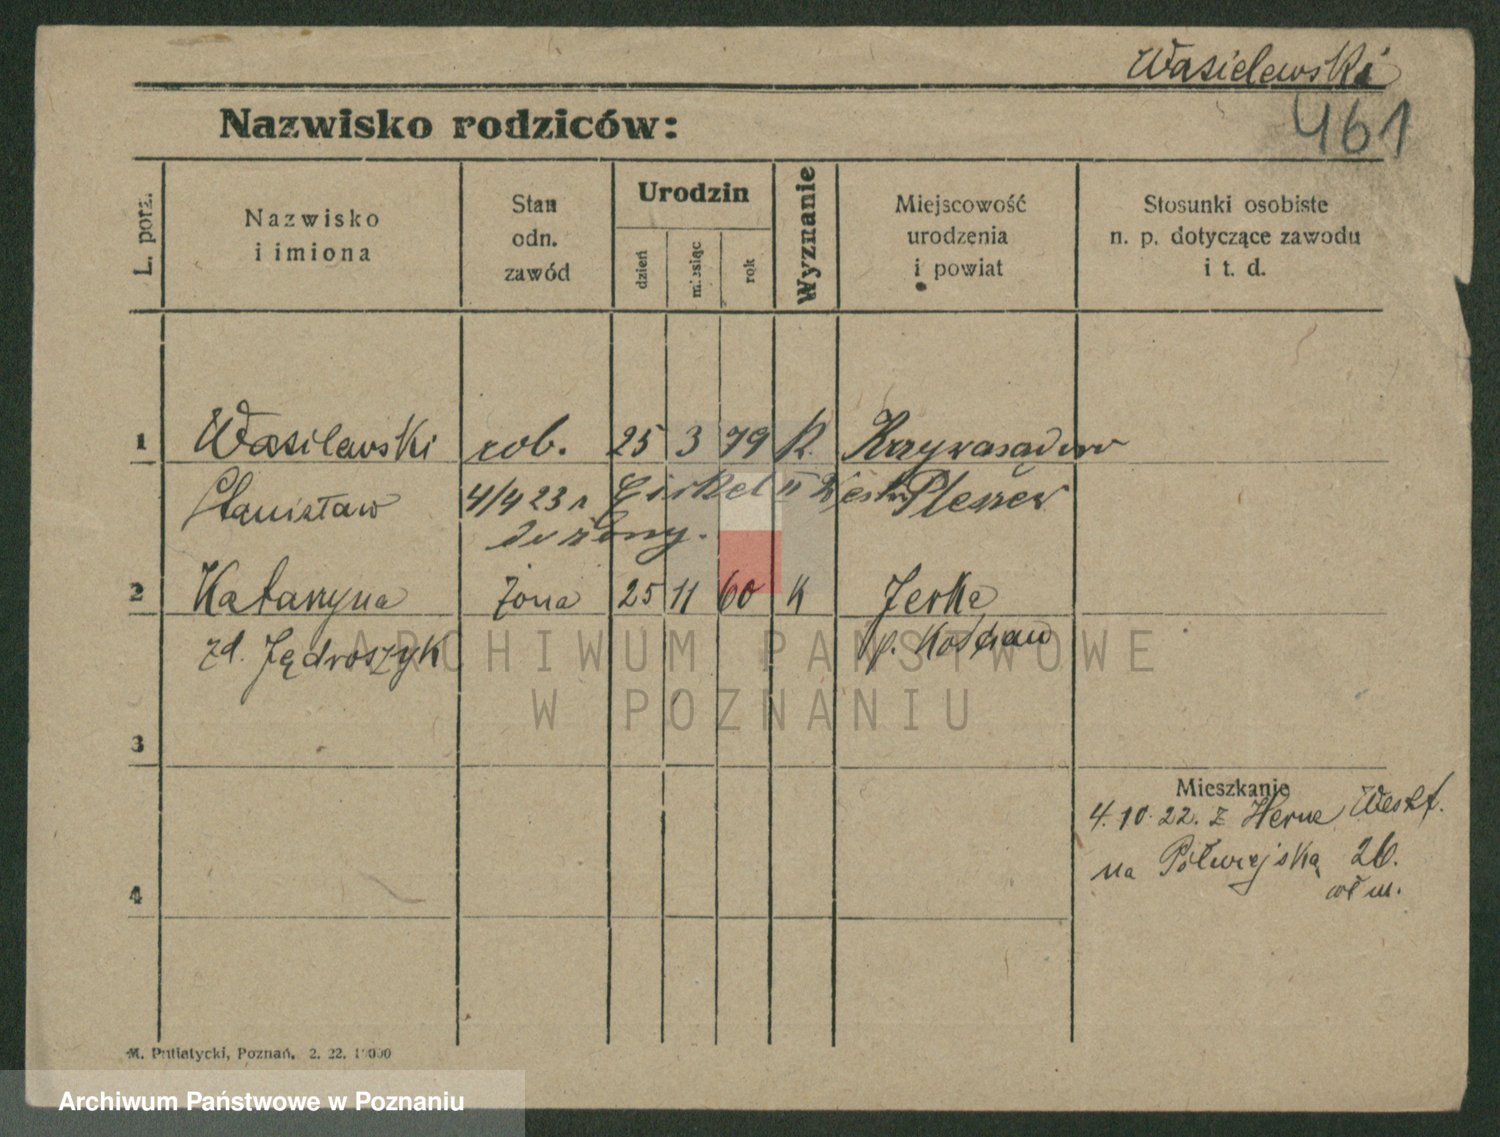 Wasielewski
461
Nazwisko rodziców:
L. porz.
Nazwisko
i imiona
Stan
odn.
zawód
Urodzin
dzień
miesiąc
rok
Wyznanie
Miejscowość
urodzenia
i powiat
Stosunki osobiste
n. p. dotyczące zawodu
i t. d.
1 Wasilewski rob. 25 3 79 K.
Stanisław 4/4 23 r Plessew
do żony.
2 Katarzyna żona 25 11 60 K Jerka
zd. Jędroszyk p. Kościan
ARCHIWUM PAŃSTWOWE
W POZNANIU
3
Mieszkanie
4. 10. 22. z Herne Westf.
na Półwiejską 26.
4
M. Putiatycki, Poznań. 2. 22. 10000
Archiwum Państwowe w Poznaniu